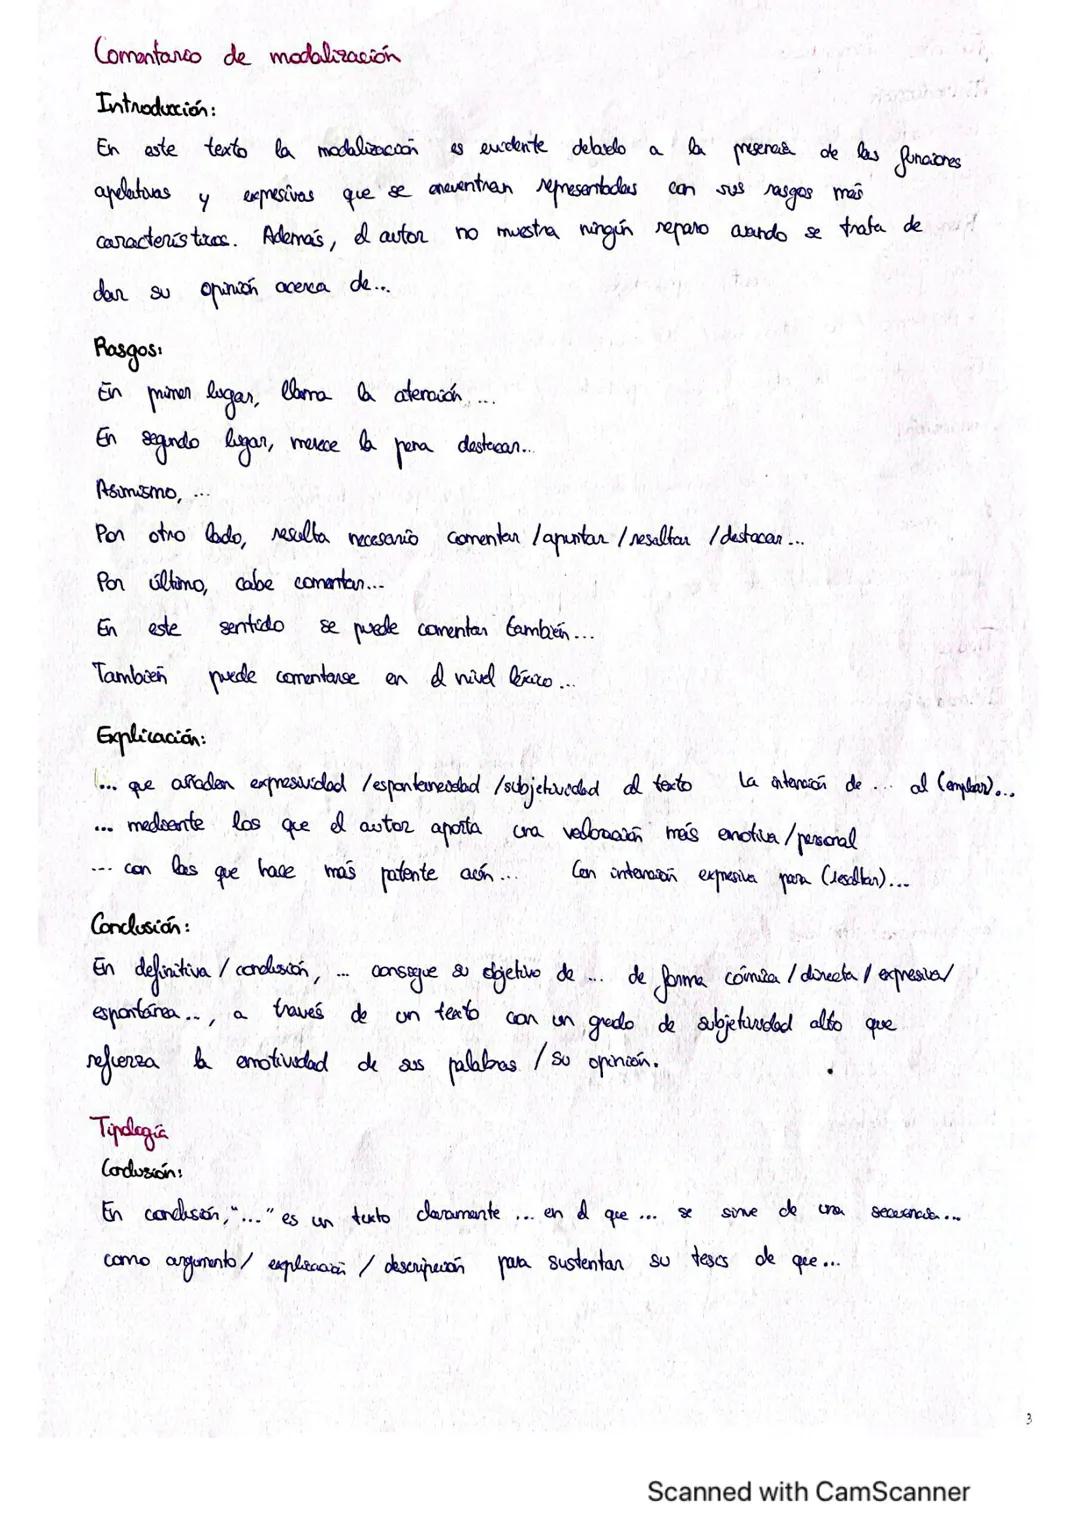 Comentario de modalización
Introducción:
En este texto la modalización es evidente debido a la presencia de las funciones
apelativas y expresivas que se encuentran representadas con sus rasgos más
característicos. Además, el autor no muestra ningún reparo cuando se trata de
dar su opinión acerca de...
Rasgos:
En primer lugar, llama la atención ...
En segundo lugar, merece la pena destacar...
Asimismo, ...
Por otro lado, resulta necesario comentar / apuntar / resaltar / destacar ...
Por último, cabe comentar...
En este sentido se puede comentar también ...
También puede comentarse en el nivel léxico ...
Explicación:
... que añaden expresividad / espontaneidad / subjetividad al texto La intención de ... al (emplear)...
... mediante los que el autor aporta una valoración más emotiva / personal
... con las que hace más patente aún ... Con intención expresiva para (resaltar)...
Conclusión:
En definitiva / conclusión, ... consigue su objetivo de ... de forma cómica / directa / expresiva /
espontánea..., a través de un texto con un grado de subjetividad alto que
refuerza la emotividad de sus palabras / su opinión.
Tipología
Conclusión:
En conclusión, "..." es un texto claramente ... en el que ... se sirve de una secuencia ...
como argumento / explicación / descripción para sustentar su tesis de que ...
3
Scanned with CamScanner